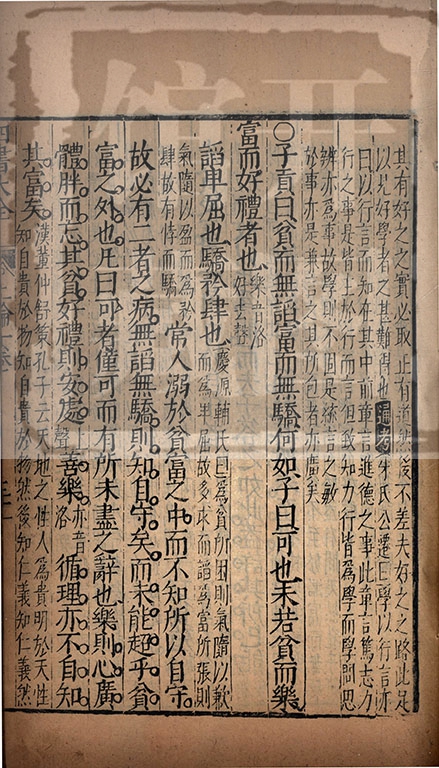 其有好之之實必取正有道然後不差夫好之之路此足
以見好學者之甚難得也通考朱氏公遷曰學以行言亦
曰以行言而知在其中前章言進德之事此章言篤志力
行之事是皆主於行而言但致知力行皆爲學而學問思
辨亦爲事故學則不固是統言之敏
於事亦是兼言之其所包者亦廣矣
○子貢曰貧而無諂富而無驕何如子曰可也未若貧而樂
富而好禮者也樂音洛好去聲
諂卑屈也驕矜肆也慶源輔氏曰爲貧所困則氣隨以歉而爲卑屈故多求而諂爲富所張則
氣隨以盈而爲矜肆故有恃而驕常人溺於貧富之中而不知所以自守
故必有二者之病無諂無驕則知自守矣而未能超乎貧
富之外也凡曰可者僅可而有所未盡之辭也樂則心廣
體胖而忘其貧好禮則安處上聲善樂亦音洛循理亦不自知
其富矣漢董仲舒策孔子云天地之性人爲貴明於天性知自貴於物知自貴於物然後知仁義知仁義然
四書大全 上論一卷